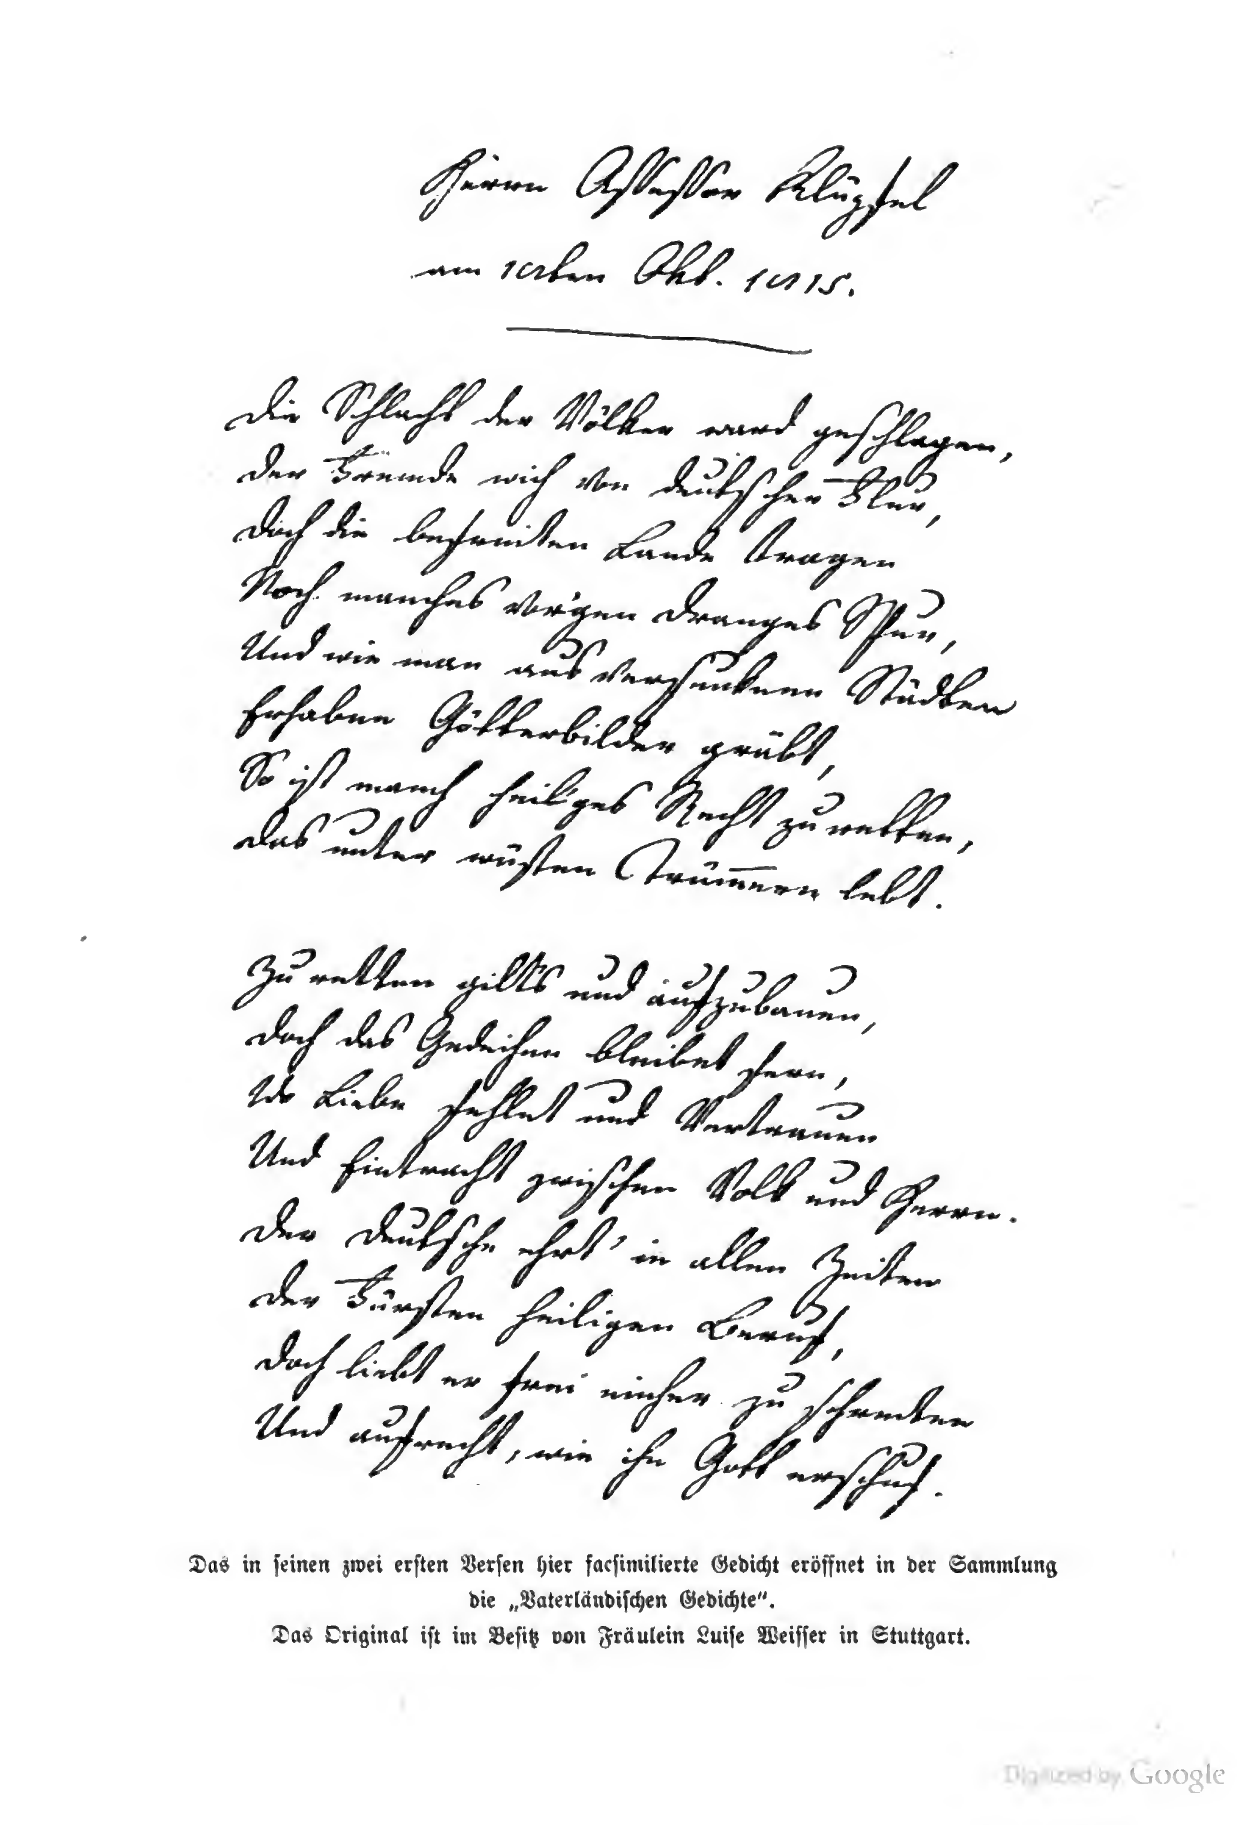 Herrn Assessor Klüpfel
am 18ten Okt. 1815.
Die Schlacht der Völker ward geschlagen,
Der Fremde wich von deutscher Flur,
Doch die befreiten Lande tragen
Noch manches vor'gen Dranges Spur,
Und wie man aus versunknen Städten
Erhabne Götterbilder gräbt,
So ist manch heil'ges Recht zu retten,
Das unter wüsten Trüm̄ern lebt.
Zu retten gilt's und aufzubauen,
Doch das Gedeihen bleibet fern,
Wo Liebe fehlet und Vertrauen
Und Eintracht zwischen Volk und Herrn.
Der Deutsche ehrt' in allen Zeiten
Der Fürsten heiligen Beruf,
Doch liebt er frei einher zu schreiten
Und aufrecht, wie ihn Gott erschuf.
Das in seinen zwei ersten Versen hier facsimilierte Gedicht eröffnet in der Sammlung
die „Vaterländischen Gedichte“.
Das Original ist im Besitz von Fräulein Luise Weisser in Stuttgart.
Digitized by Google